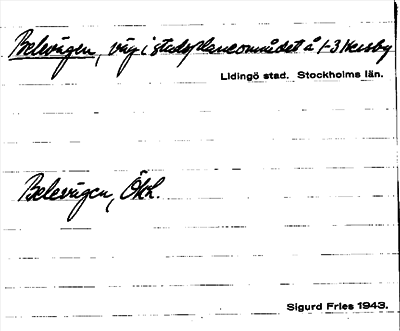 Belevägen, väg i stadsplaneområdet å 1-3 Hersby
Lidingö stad. Stockholms län.
Belevägen, Ökk.
Sigurd Fries 1943.